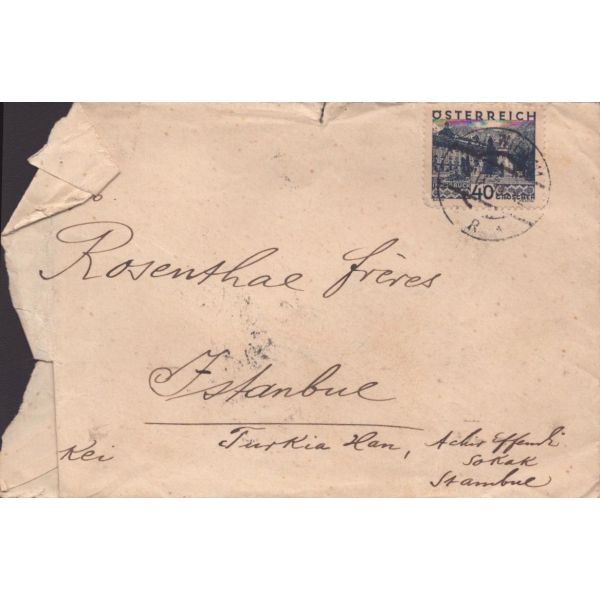 ÖSTERREICH
INNSBRUCK
40 GROSCHEN
WIEN
R
Rosenthal frères
Istanbul
Turkia Han, Achir Effendi
Sokak
Stambul